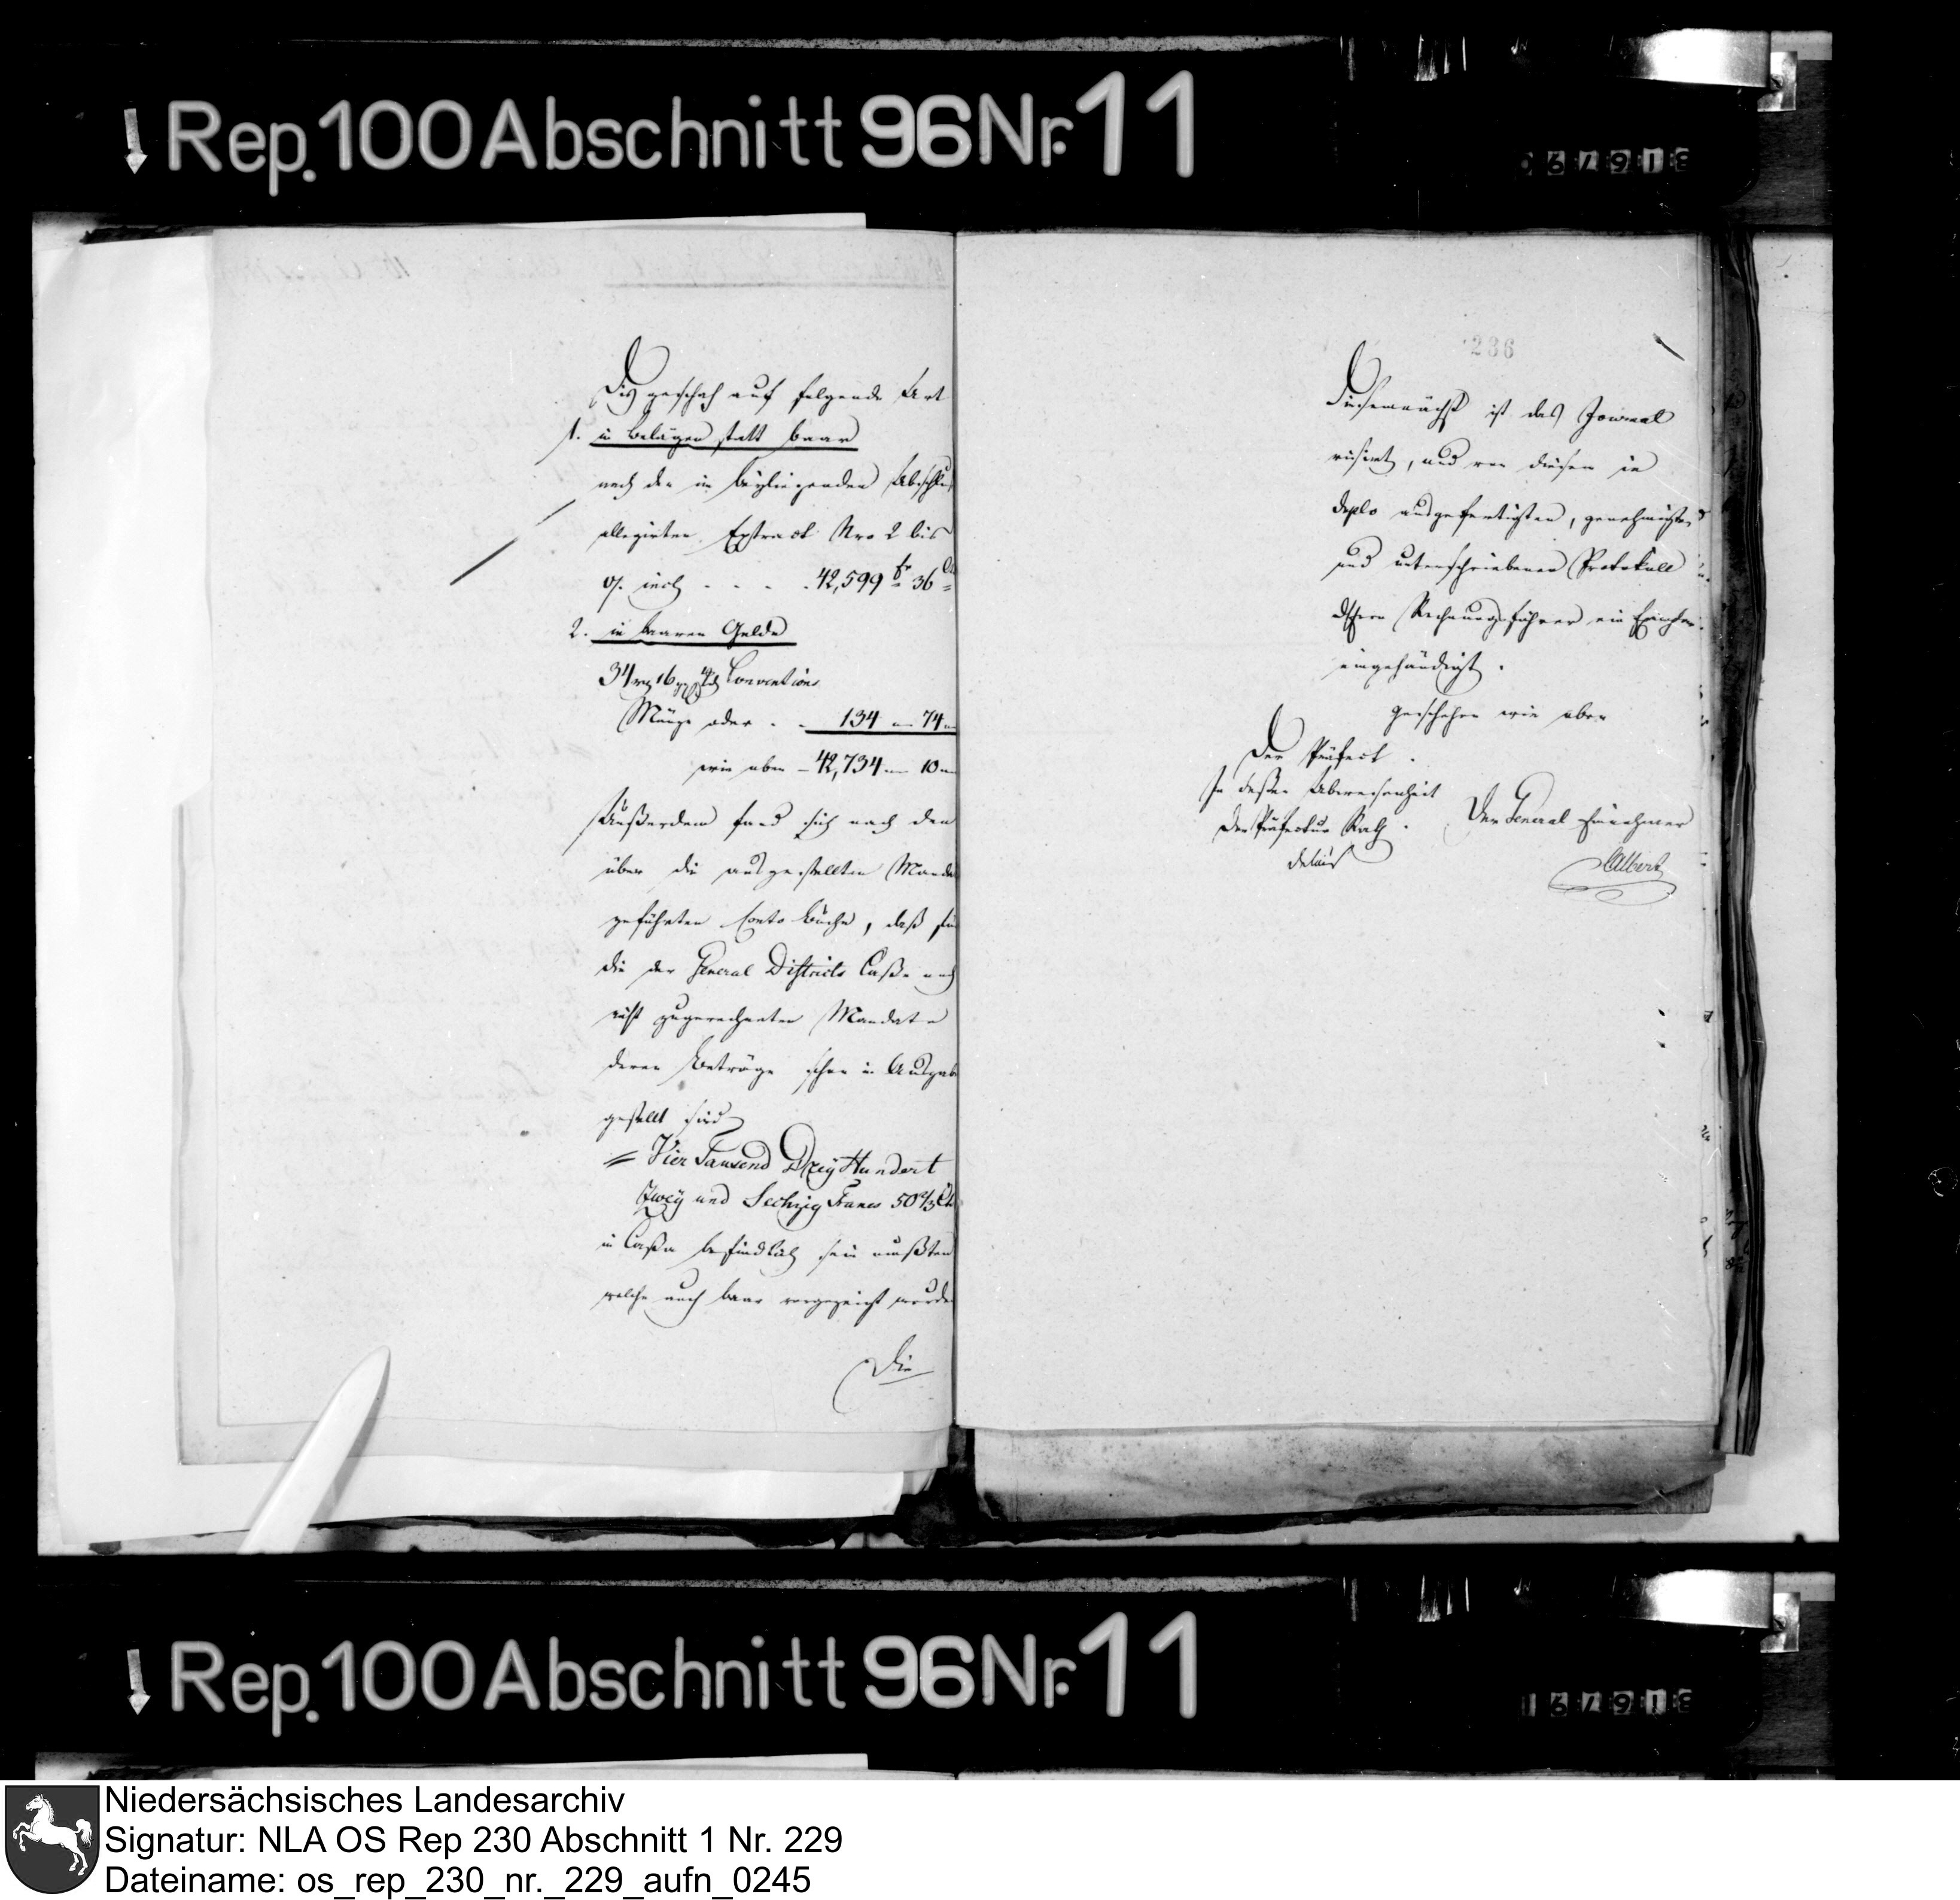 Rep. 100 Abschnitt 96 Nr. 11
Dies geschah auf folgende Art
1. in Belägen statt baar
nach den im beyliegenden Abschluß
allegirten Extract Nro 2 bis
42,599 fr 36 Ct
2. in baaren Gelde
34 16 Conventions
Münze oder . . 134 — 74 —
wie oben — 42,734 — 10 —
Außerdem fand sich nach den
über die ausgestellten Manda
geführten Conto Buche, daß für
die der General Districts Casse noch
nicht zugerechneten Mandate
deren Beträge schon in Ausgabe
gestellt sind
= Vier Tausend Drey Hundert
Zwey und Sechzig Francs 50 2/3 Ct
in Cassa befindlich sein mußten
welche auch baar vorgezeigt wurden
Die
236
Diesemnächst ist das Journal
visirt, und von diesem in
duplo ausgefertigten, genehmigten
und unterschriebenen Protokoll
Rechnungsführer ein Exemplar
eingehändigt.
Geschehen wie oben
Der Präfect.
In dessen Abwesenheit
Der Präfectur Rath.
Der General Einnehmer
delius
Albert
Rep. 100 Abschnitt 96 Nr. 11
Niedersächsisches Landesarchiv
Signatur: NLA OS Rep 230 Abschnitt 1 Nr. 229
Dateiname: os_rep_230_nr._229_aufn_0245